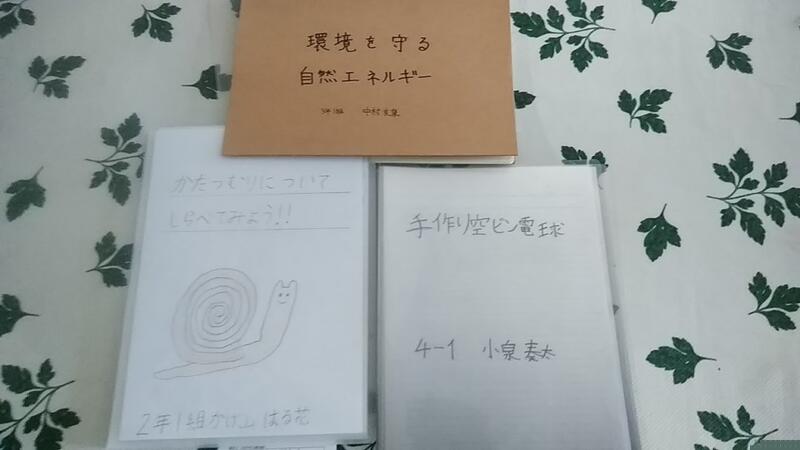 環境を守る
自然エネルギー
中村
かたつむりについて
しらべてみよう!!
2年1組かげ山 はる花
手作り空ビン電球
4-1 小泉奏太